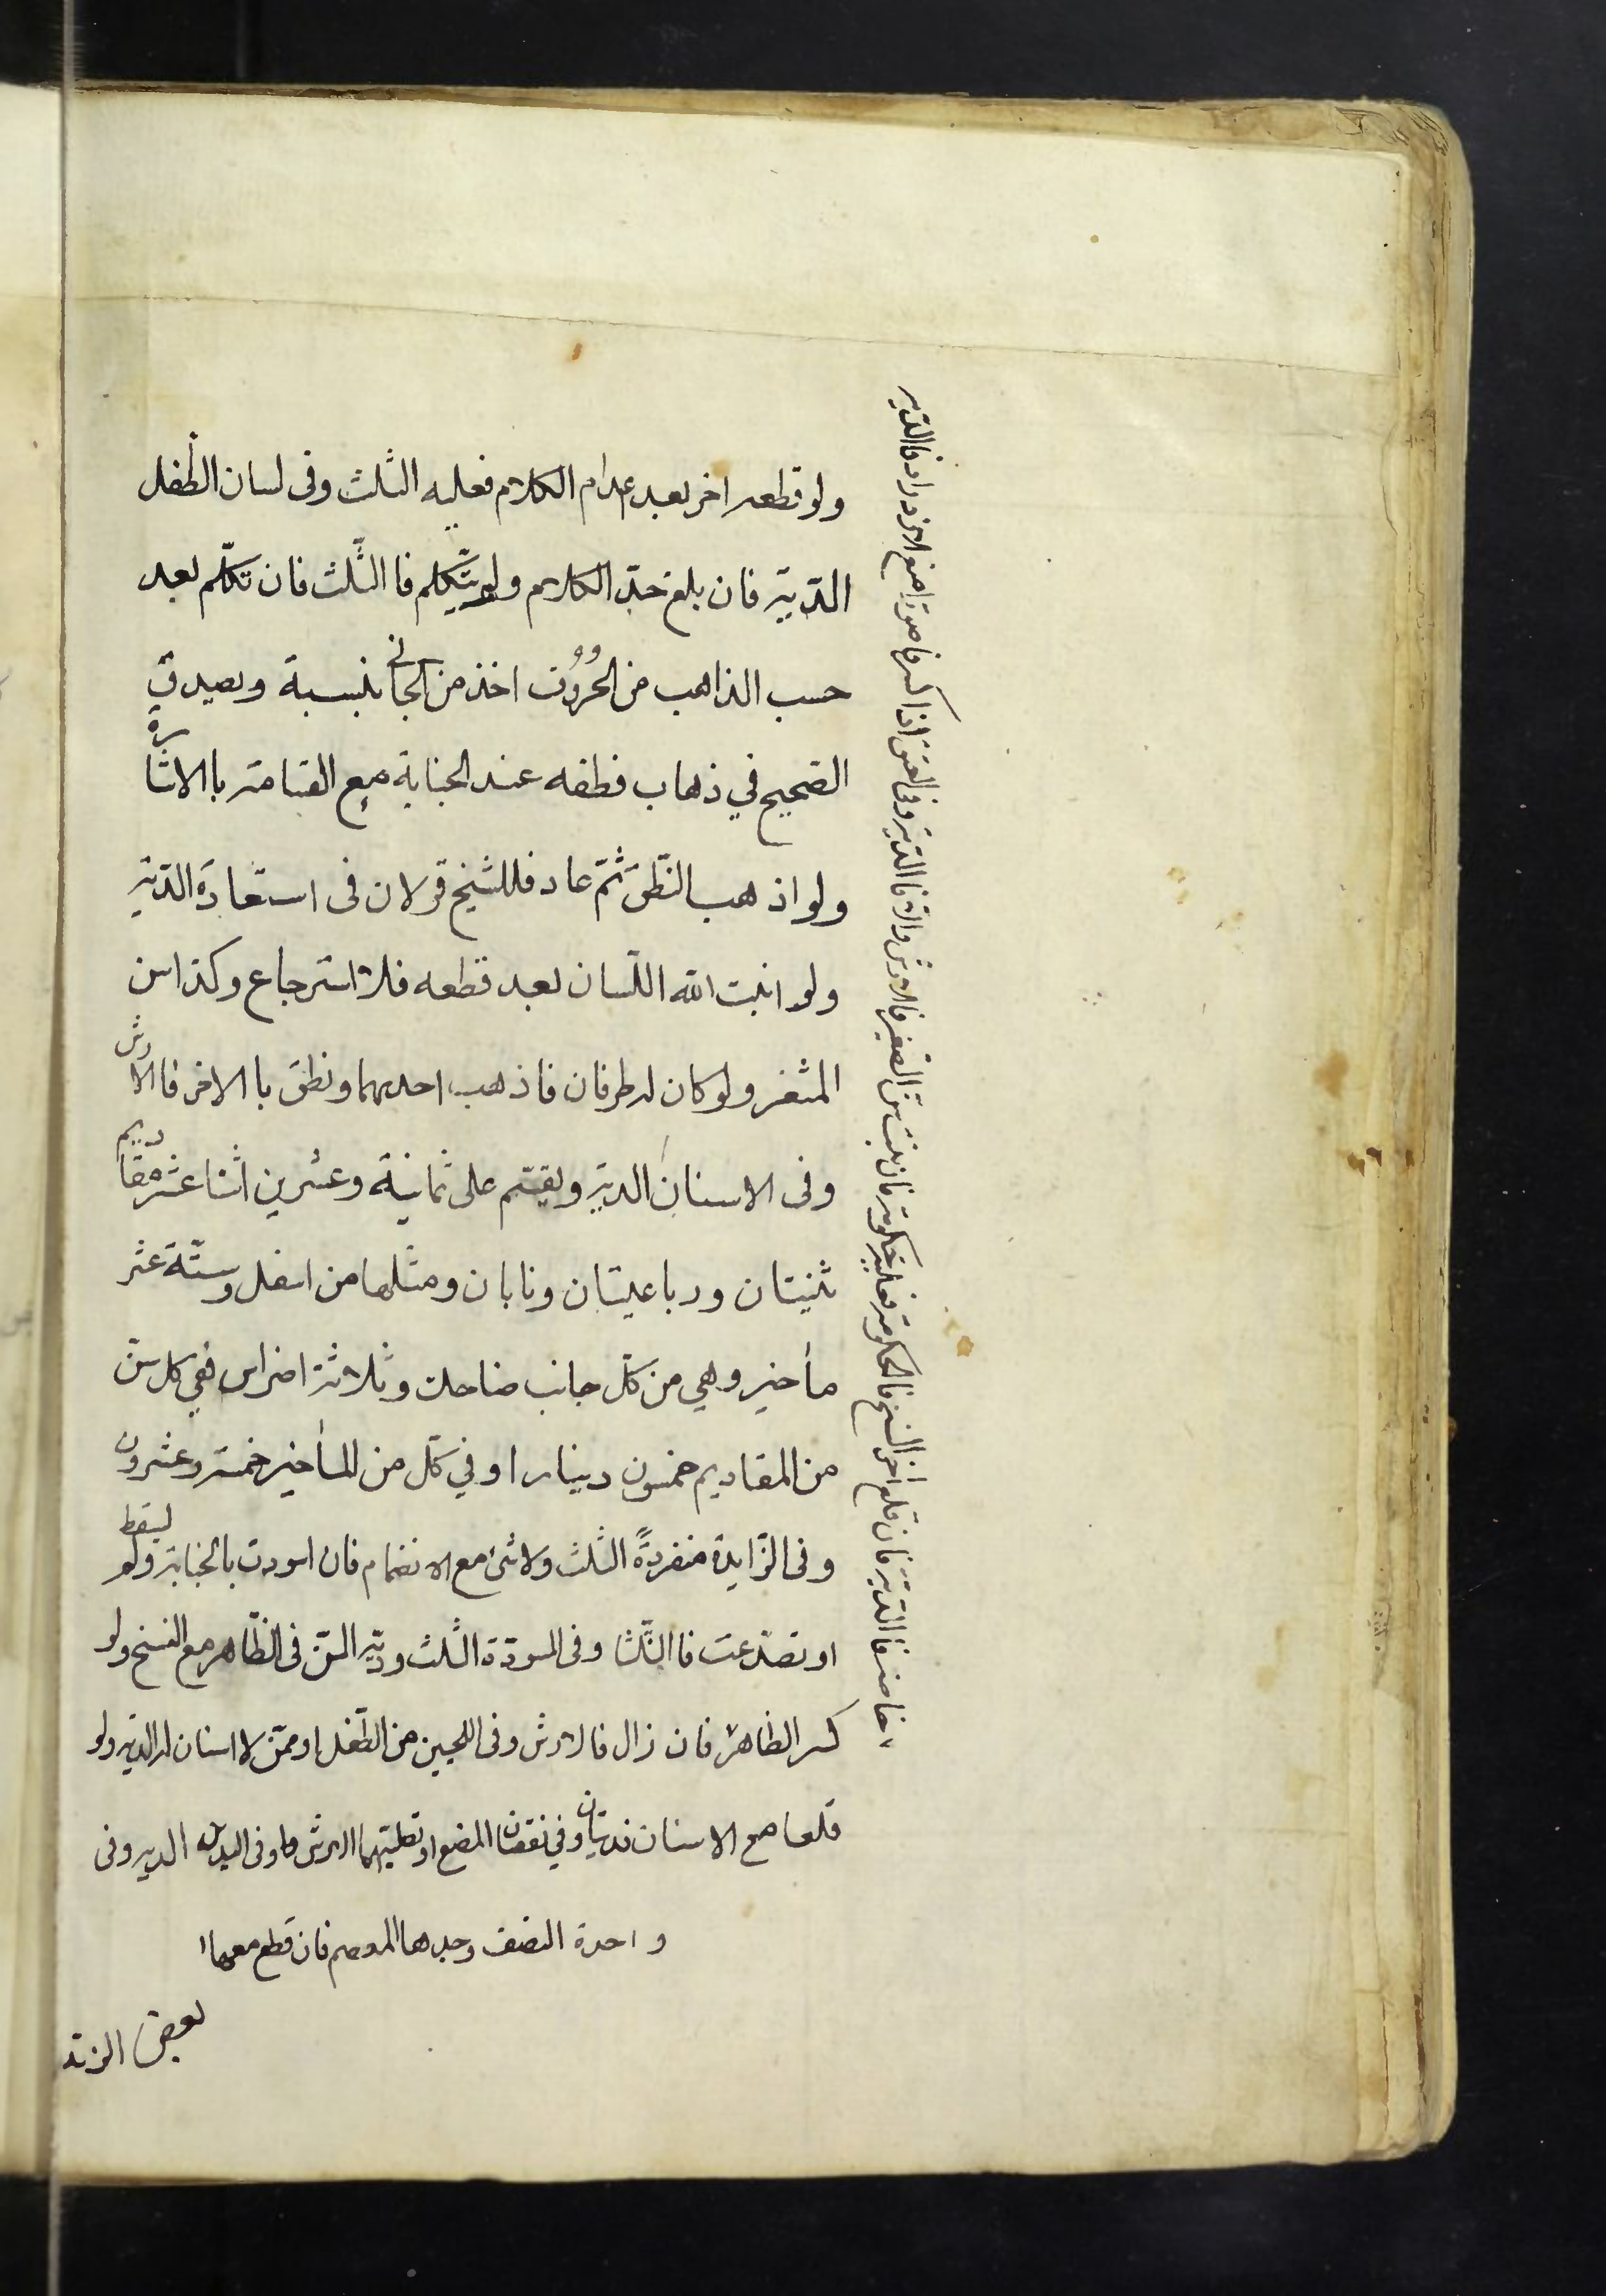 ولو قطعه اخر بعد اعدام الكلام فعليه الثلث وفى لسان الطفل
الدية فان بلغ حد الكلام ولم يتكلم فا الثلث فان تكلم بعد
حسب الذاهب من الحروف اخذ من الجانى بنسبة ويصدق
الصحيح في ذهاب نطقه عند الجناية مع القسامة با الاشارة
ولو اذهب النطق ثم عاد فللشيخ قولان فى استعادة الدية
ولو انبت الله اللسان بعد قطعه فلا استرجاع وكذا سن
المثغر ولو كان له طرفان فاذهب احدهما ونطق با الاخر فا الارش
وفى الاسنان الدية ويقسم على ثمانية وعشرين اثنا عشر مقاديم
ثنيتان ورباعيتان ونابان ومثلها من اسفل وستة عشر
مآخير وهي من كل جانب ضاحك وثلاثة اضراس ففي كل سن
من المقاديم خمسون دينارا وفي كل من المآخير خمسة وعشرون
وفى الزايدة منفردة الثلث ولا شئ مع الانضمام فان اسودت بالجناية ولم يسقط
او تصدعت فا الثلثا وفى المسودة الثلث ودية السن فى الظاهر مع السنخ ولو
كسر الظاهر فان زال فا لارش وفى اللحيين من الطفل او ممن لا اسنان له الدية ولو
قلعا مع الاسنان فديتان وفي نقصان المضع او تصلبهما الارش وفى اليدين الدية وفى
واحدة النصف وحدها المعصم فان قطع معها
بعض الزند
خاصة فا الدية فان قلع اخر السنخ فا لحكومة فعليه حكومة فان نبت سن الصغير فالارش والا فا الدية وفى العنق اذا كسر فاصور او منع الازدراد فا الدية